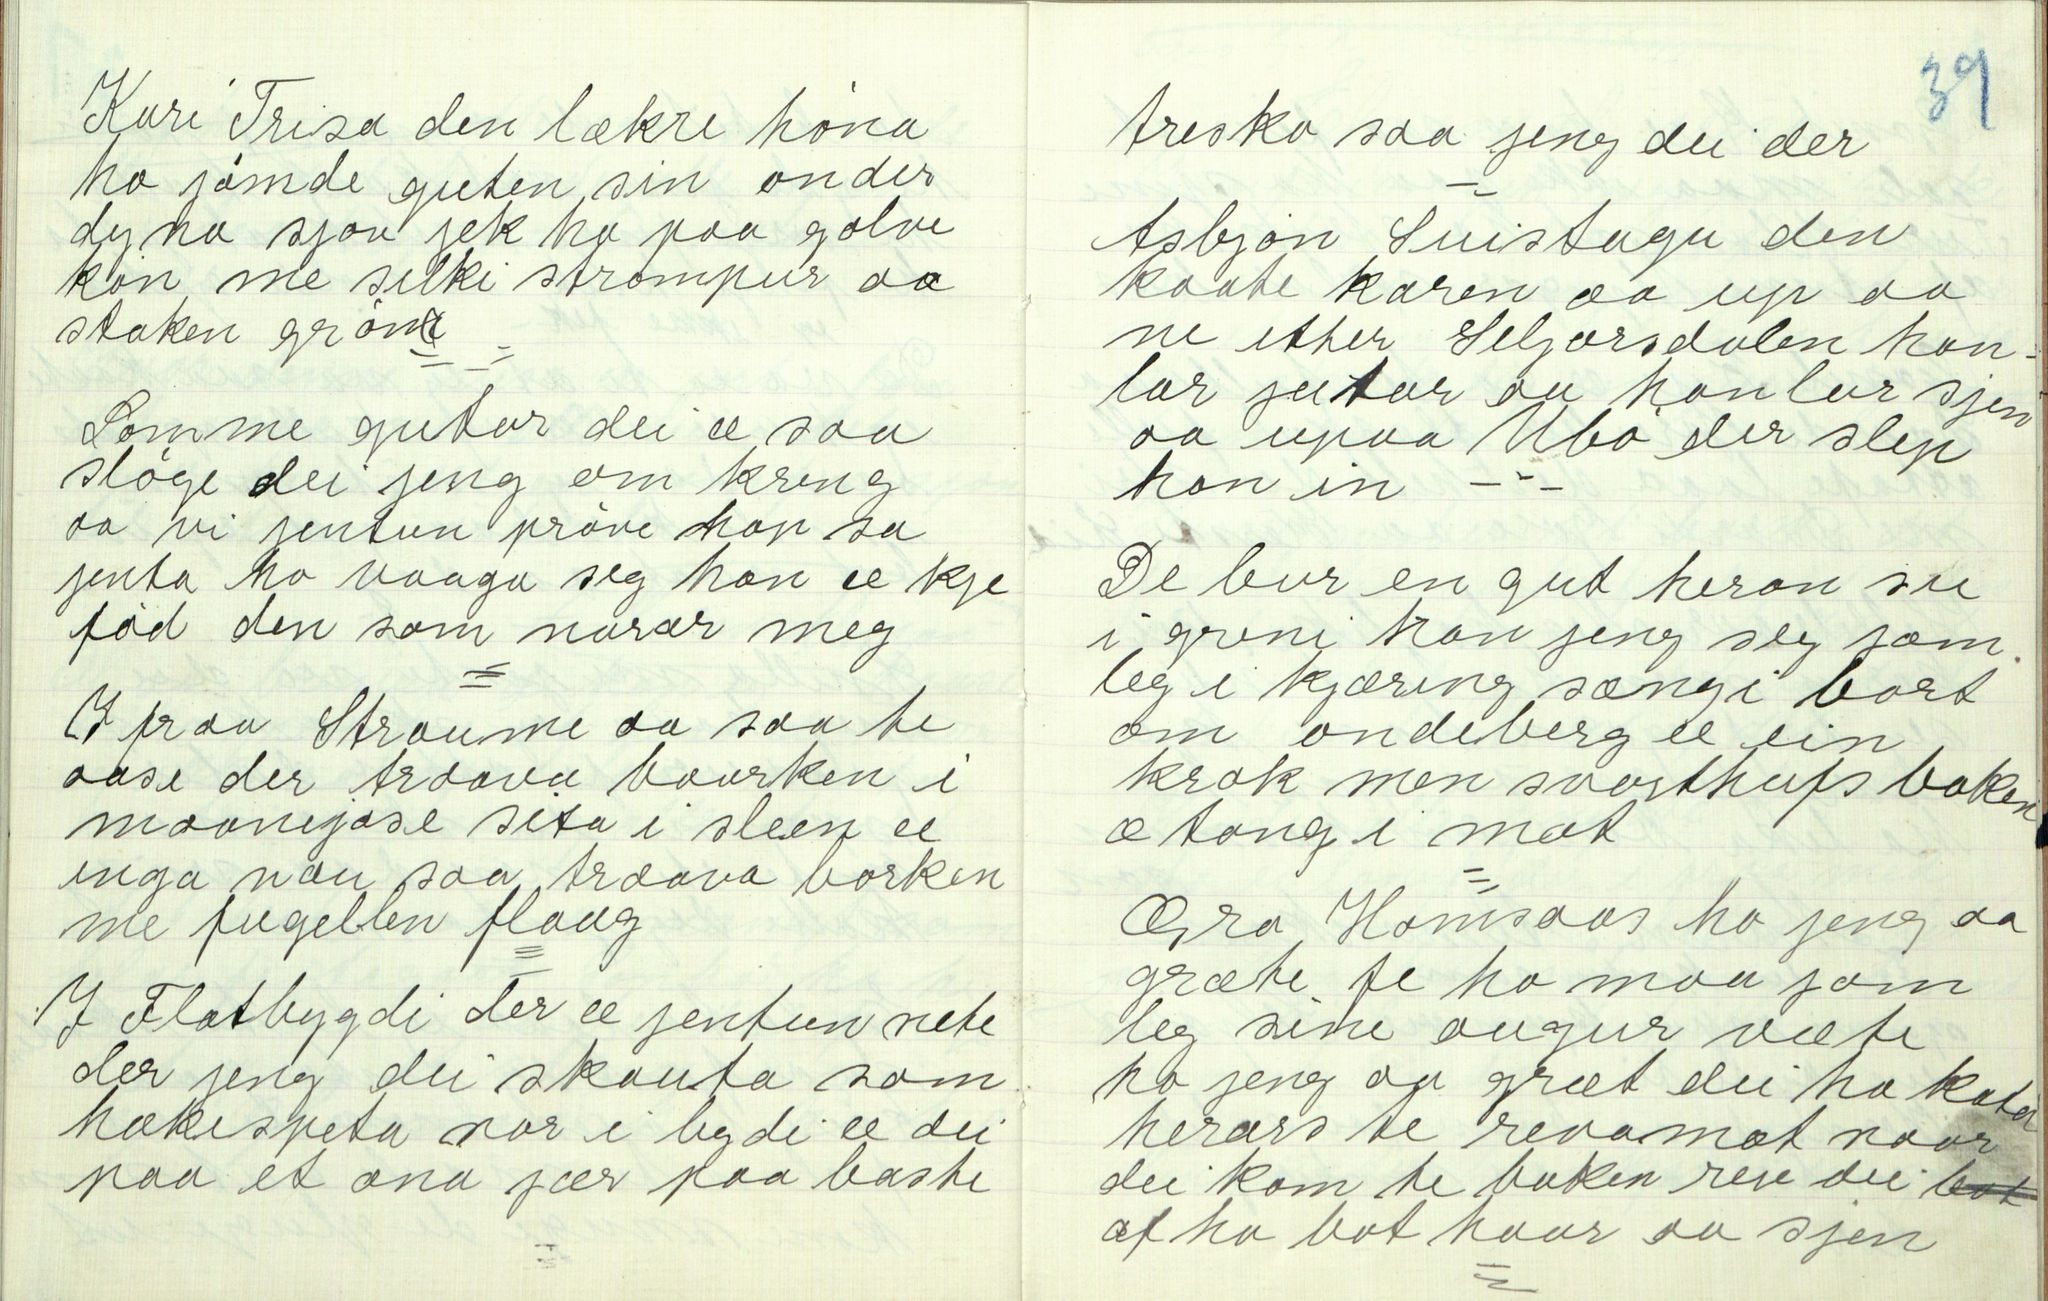 Kari Trisa den lækre høna
ho jømde guten sin onder
dyna sjøv jek ho paa golve
køn me silki strømpur aa
staken grøne
Somme gutar dei æ saa
sløge dei jeng om kring
aa vi jentun prøve han sa
jenta ho vaaga seg han æ kje
fød den som narar meg
I fraa Straume aa saa te
aase der traava baarken i
maanejase sita i sleen æ
inga nau saa traava borken
me fugellen flaug
I Flatbygdi der æ jentun nete
der jeng dei skauta som
hakespeta nor i bygdi æ dei
paa et ana jær paa baste
39
tresko saa jeng dei der
Asbjøn Suistaga den
kaate karen aa up aa
ne etter Seljorsdalen han
lar jutar aa han lar sjen
aa upaa Ubø der slep
han in
De bur en gut heran sei
i greni han jeng seg jom
leg i kjæring sængi bort
om ondeberg æ ein
krok men svarthufs baken
æ tong i mot
Ægra Homsaas ho jeng aa
græte fe ho maa jom
leg sine augur væte
ho jeng aa græt dei ho katen
herars te revamat naar
dei kom te baken reve dei bot
af ho bot haar aa sjen